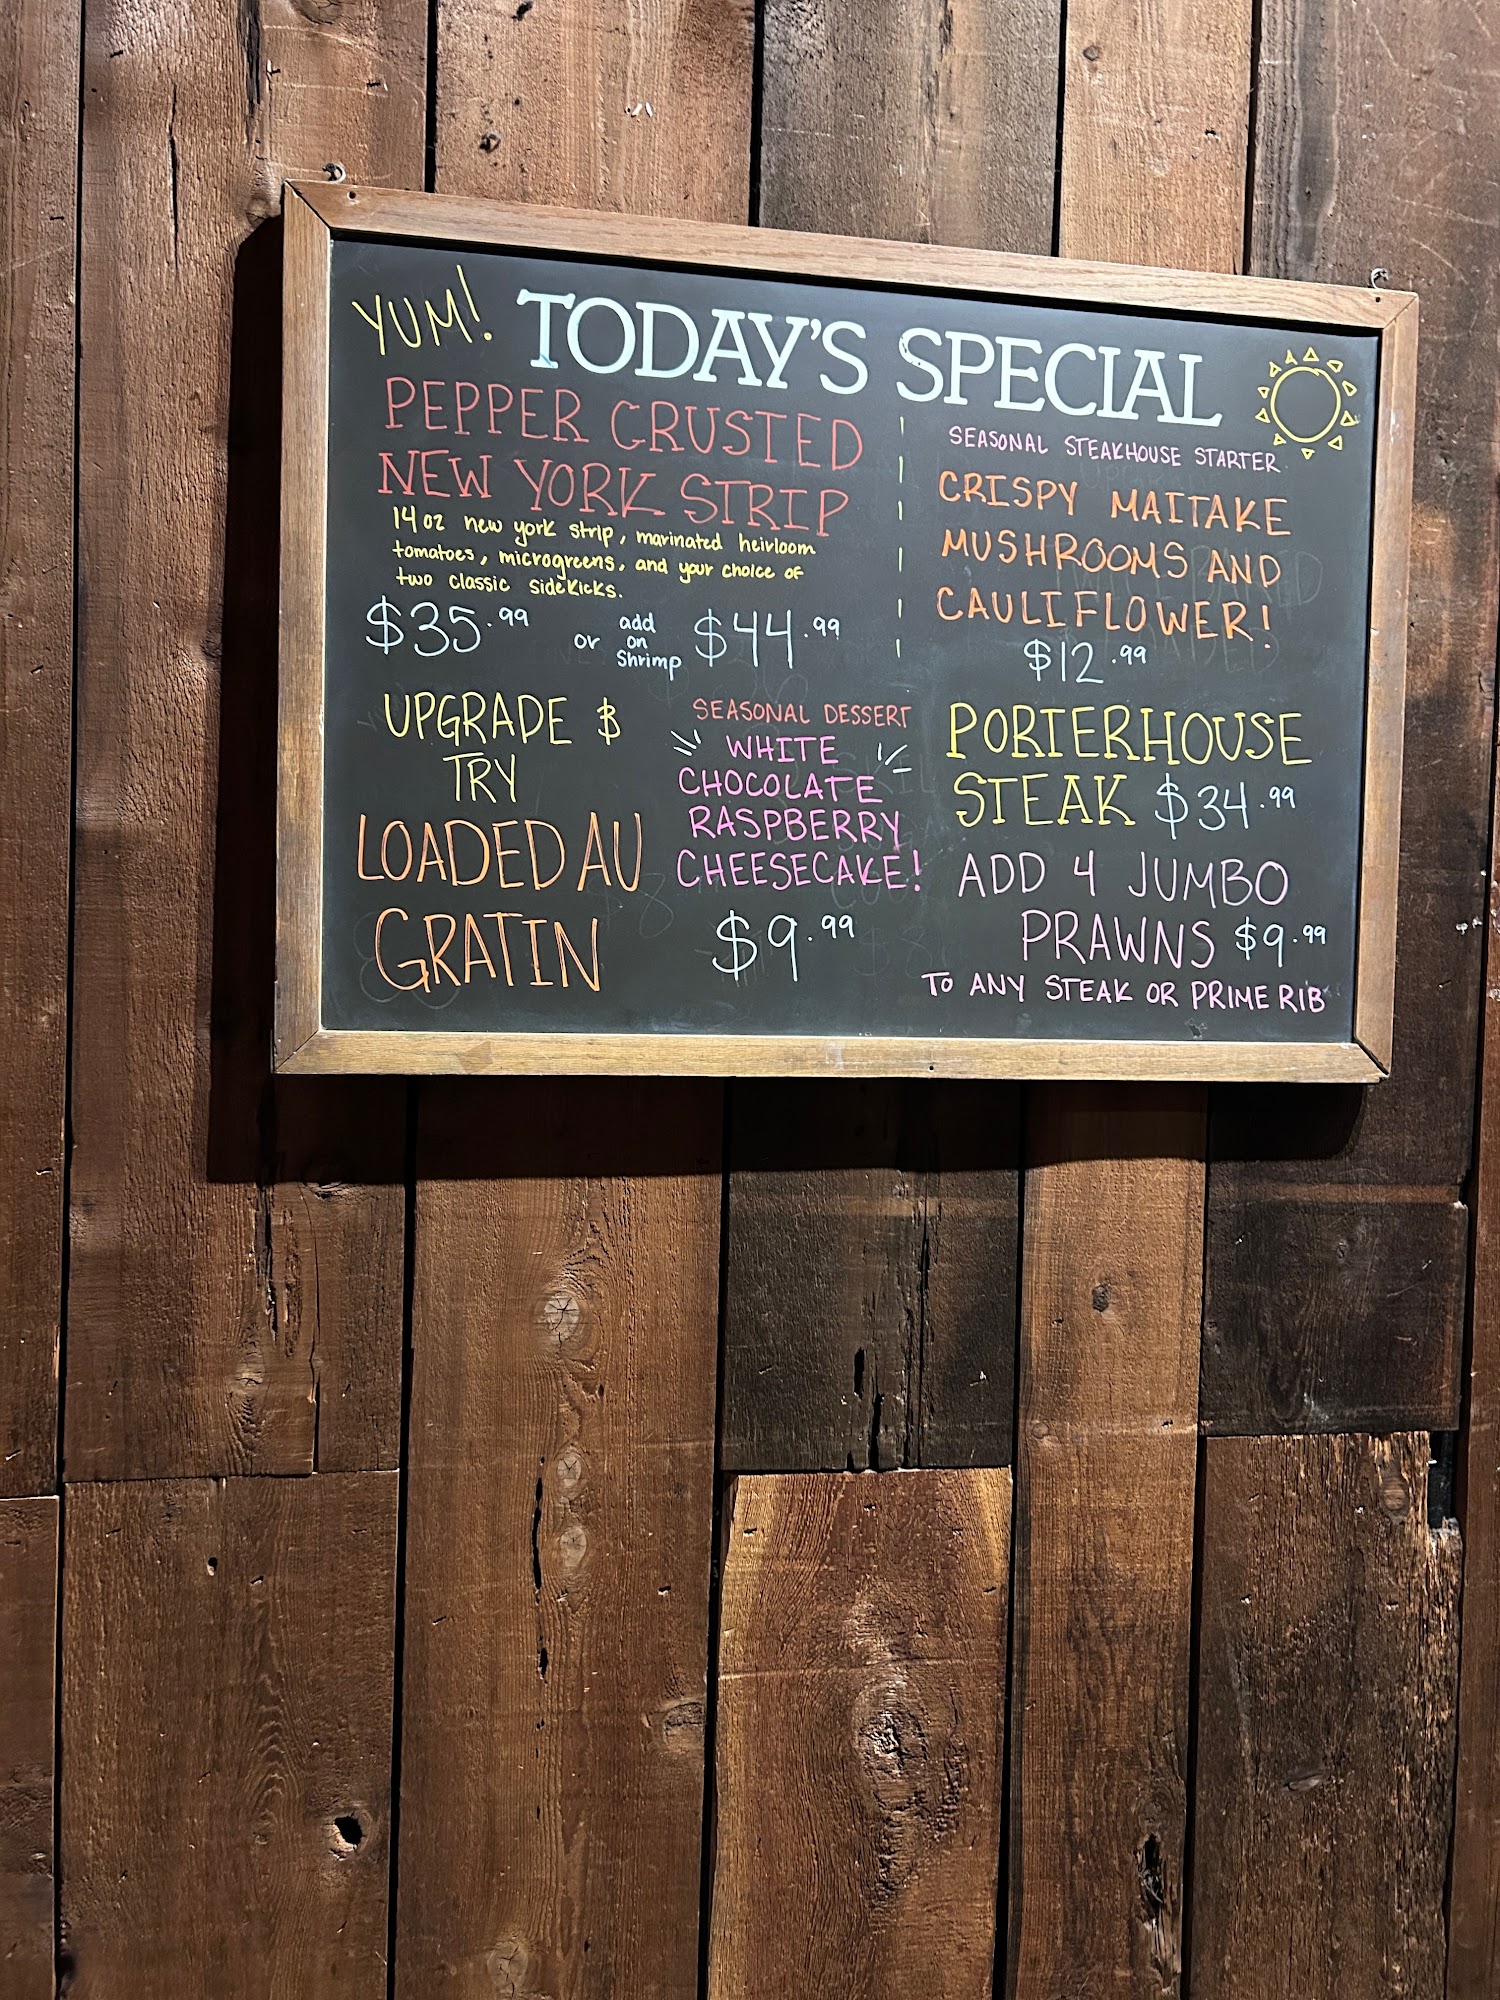 YUM! TODAY'S SPECIAL
PEPPER CRUSTED
NEW YORK STRIP
14oz new york strip, marinated heirloom
tomatoes, microgreens, and your choice of
two classic sidekicks.
$35.99 or add on Shrimp $44.99
SEASONAL STEAKHOUSE STARTER
CRISPY MAITAKE
MUSHROOMS AND
CAULIFLOWER!
$12.99
UPGRADE &
TRY
LOADED AU
GRATIN
SEASONAL DESSERT
WHITE
CHOCOLATE
RASPBERRY
CHEESECAKE!
$9.99
PORTERHOUSE
STEAK $34.99
ADD 4 JUMBO
PRAWNS $9.99
TO ANY STEAK OR PRIME RIB